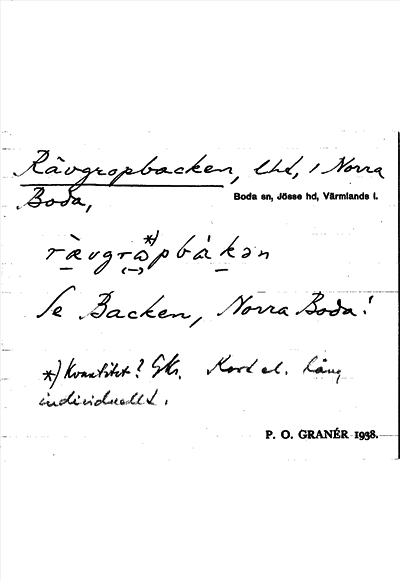 Rävgropbacken, lht, i Norra
Boda,
Boda sn, Jösse hd, Värmlands l.
rä̀vgrɷ*)pbàkən
Se Backen, Norra Boda!
*) Kvantitet? GKr. Kort el. lång
individuellt.
P. O. GRANÉR 1938.